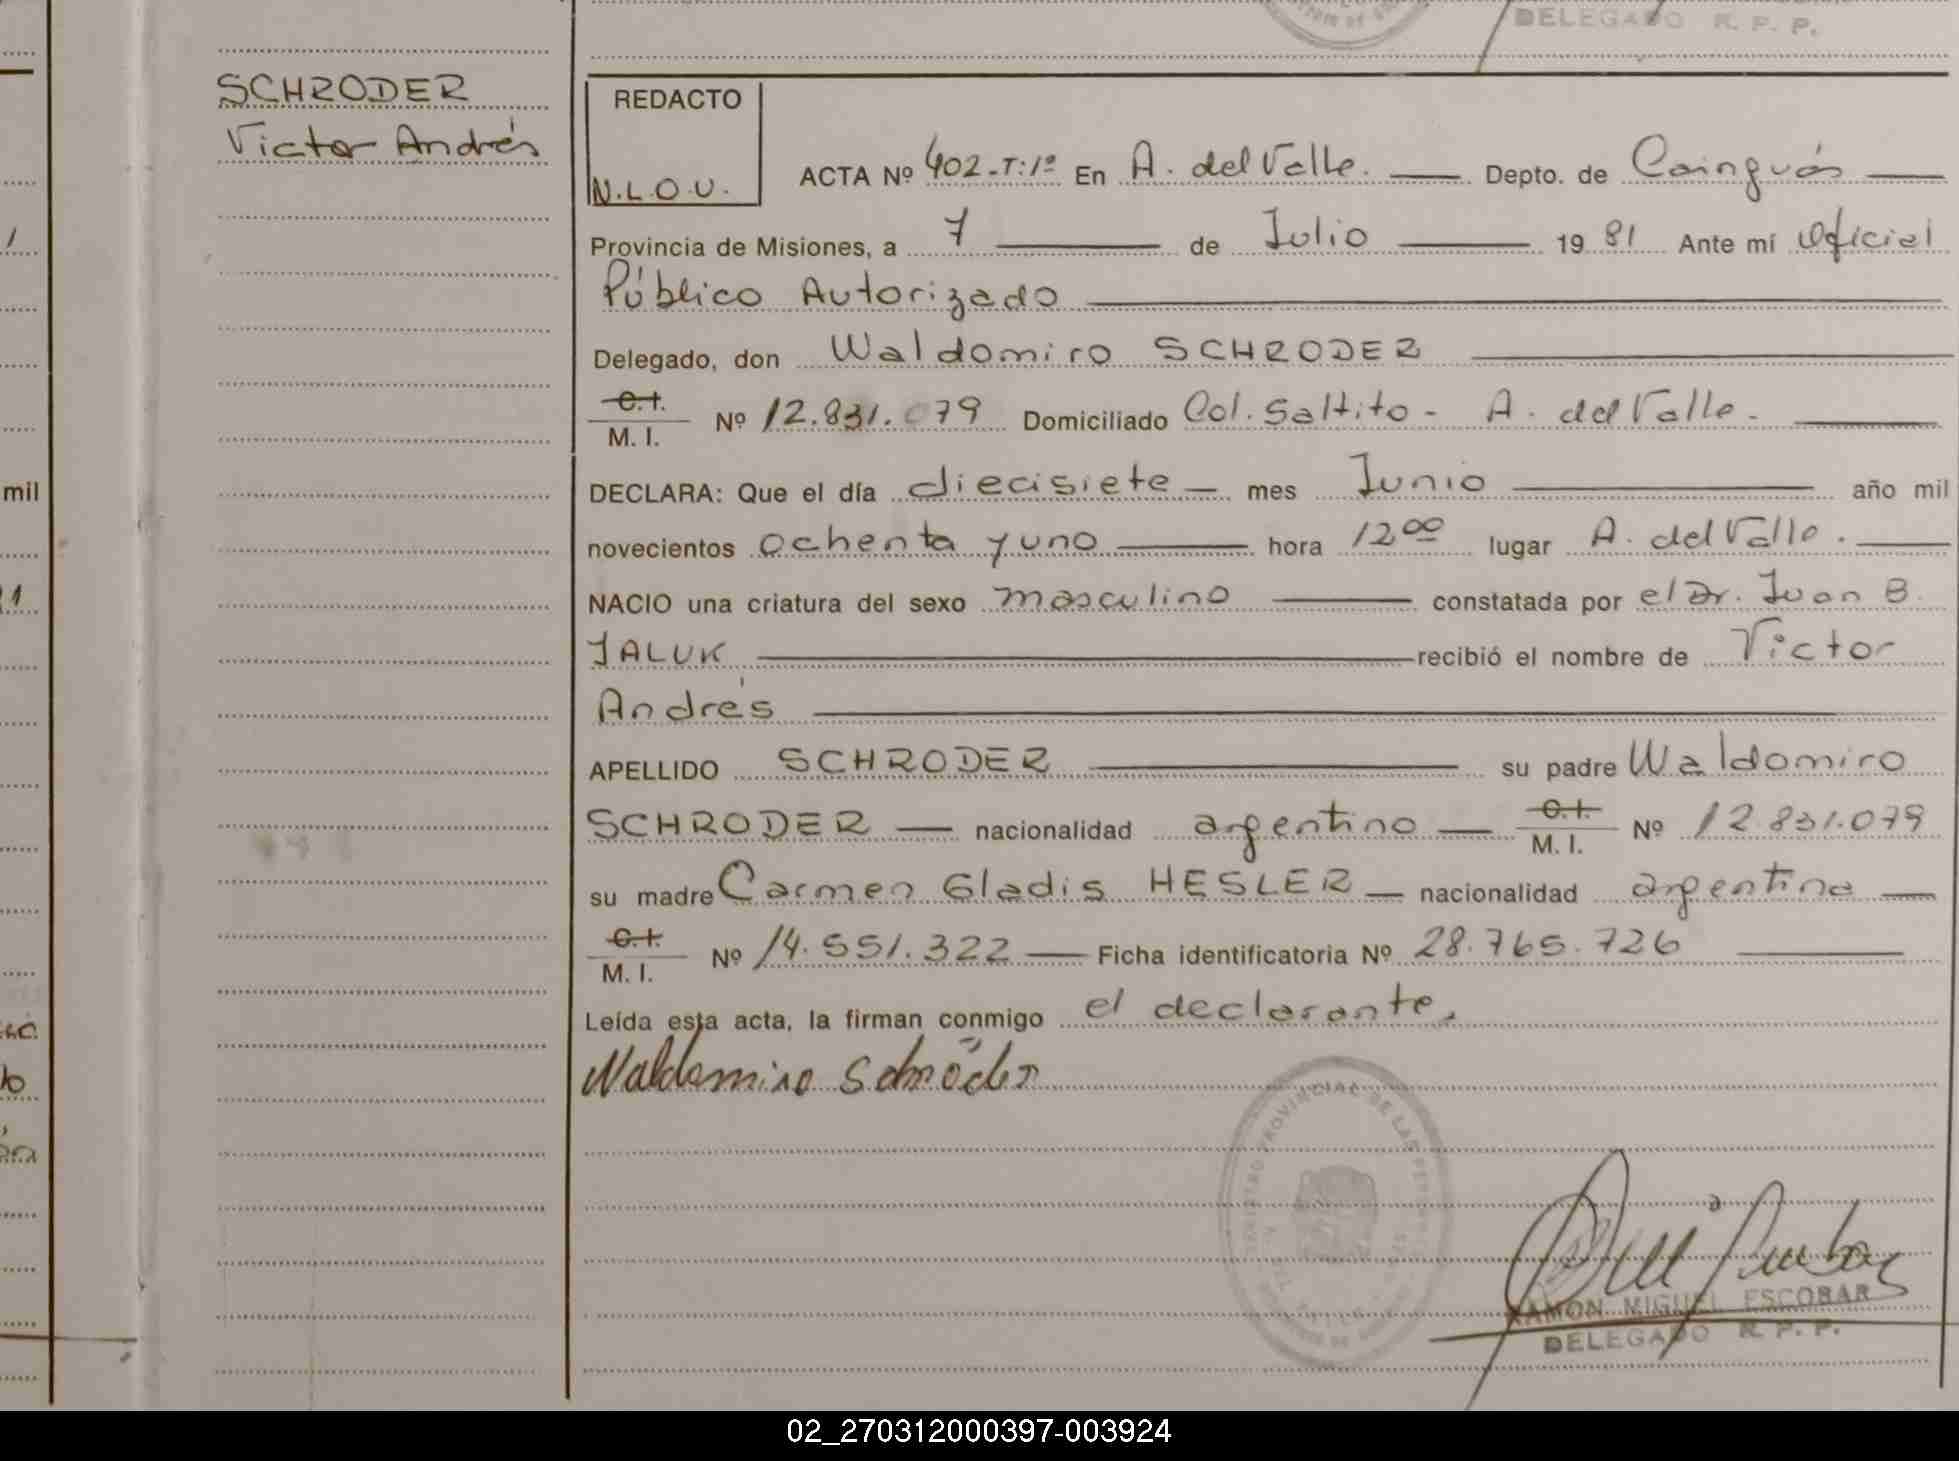 DELEGADO R. P. P.
SCHRODER
Victor Andrés
REDACTO
N.L.O.U.
ACTA Nº 402-T:1º En A. del Valle. Depto. de Cainguás
Provincia de Misiones, a 7 de Julio 1981 Ante mí Oficial
Público Autorizado
Delegado, don Waldomiro SCHRODER
C.I. M. I. Nº 12.831.079 Domiciliado Col. Saltito - A. del Valle -
DECLARA: Que el día diecisiete mes Junio año mil
novecientos ochenta y uno hora 12 00 lugar A. del Valle.
NACIO una criatura del sexo masculino constatada por el Dr. Juan B.
JALUK recibió el nombre de Victor
Andrés
APELLIDO SCHRODER su padre Waldomiro
SCHRODER nacionalidad argentino C.I. M. I. Nº 12.831.079
su madre Carmen Gladis HESLER nacionalidad argentina
C.I. M. I. Nº 14.551.322 Ficha identificatoria Nº 28.765.726
Leída esta acta, la firman conmigo el declarante.
Waldomiro Schröder
RAMON MIGUEL ESCOBAR
DELEGADO R. P. P.
mil
02_270312000397-003924